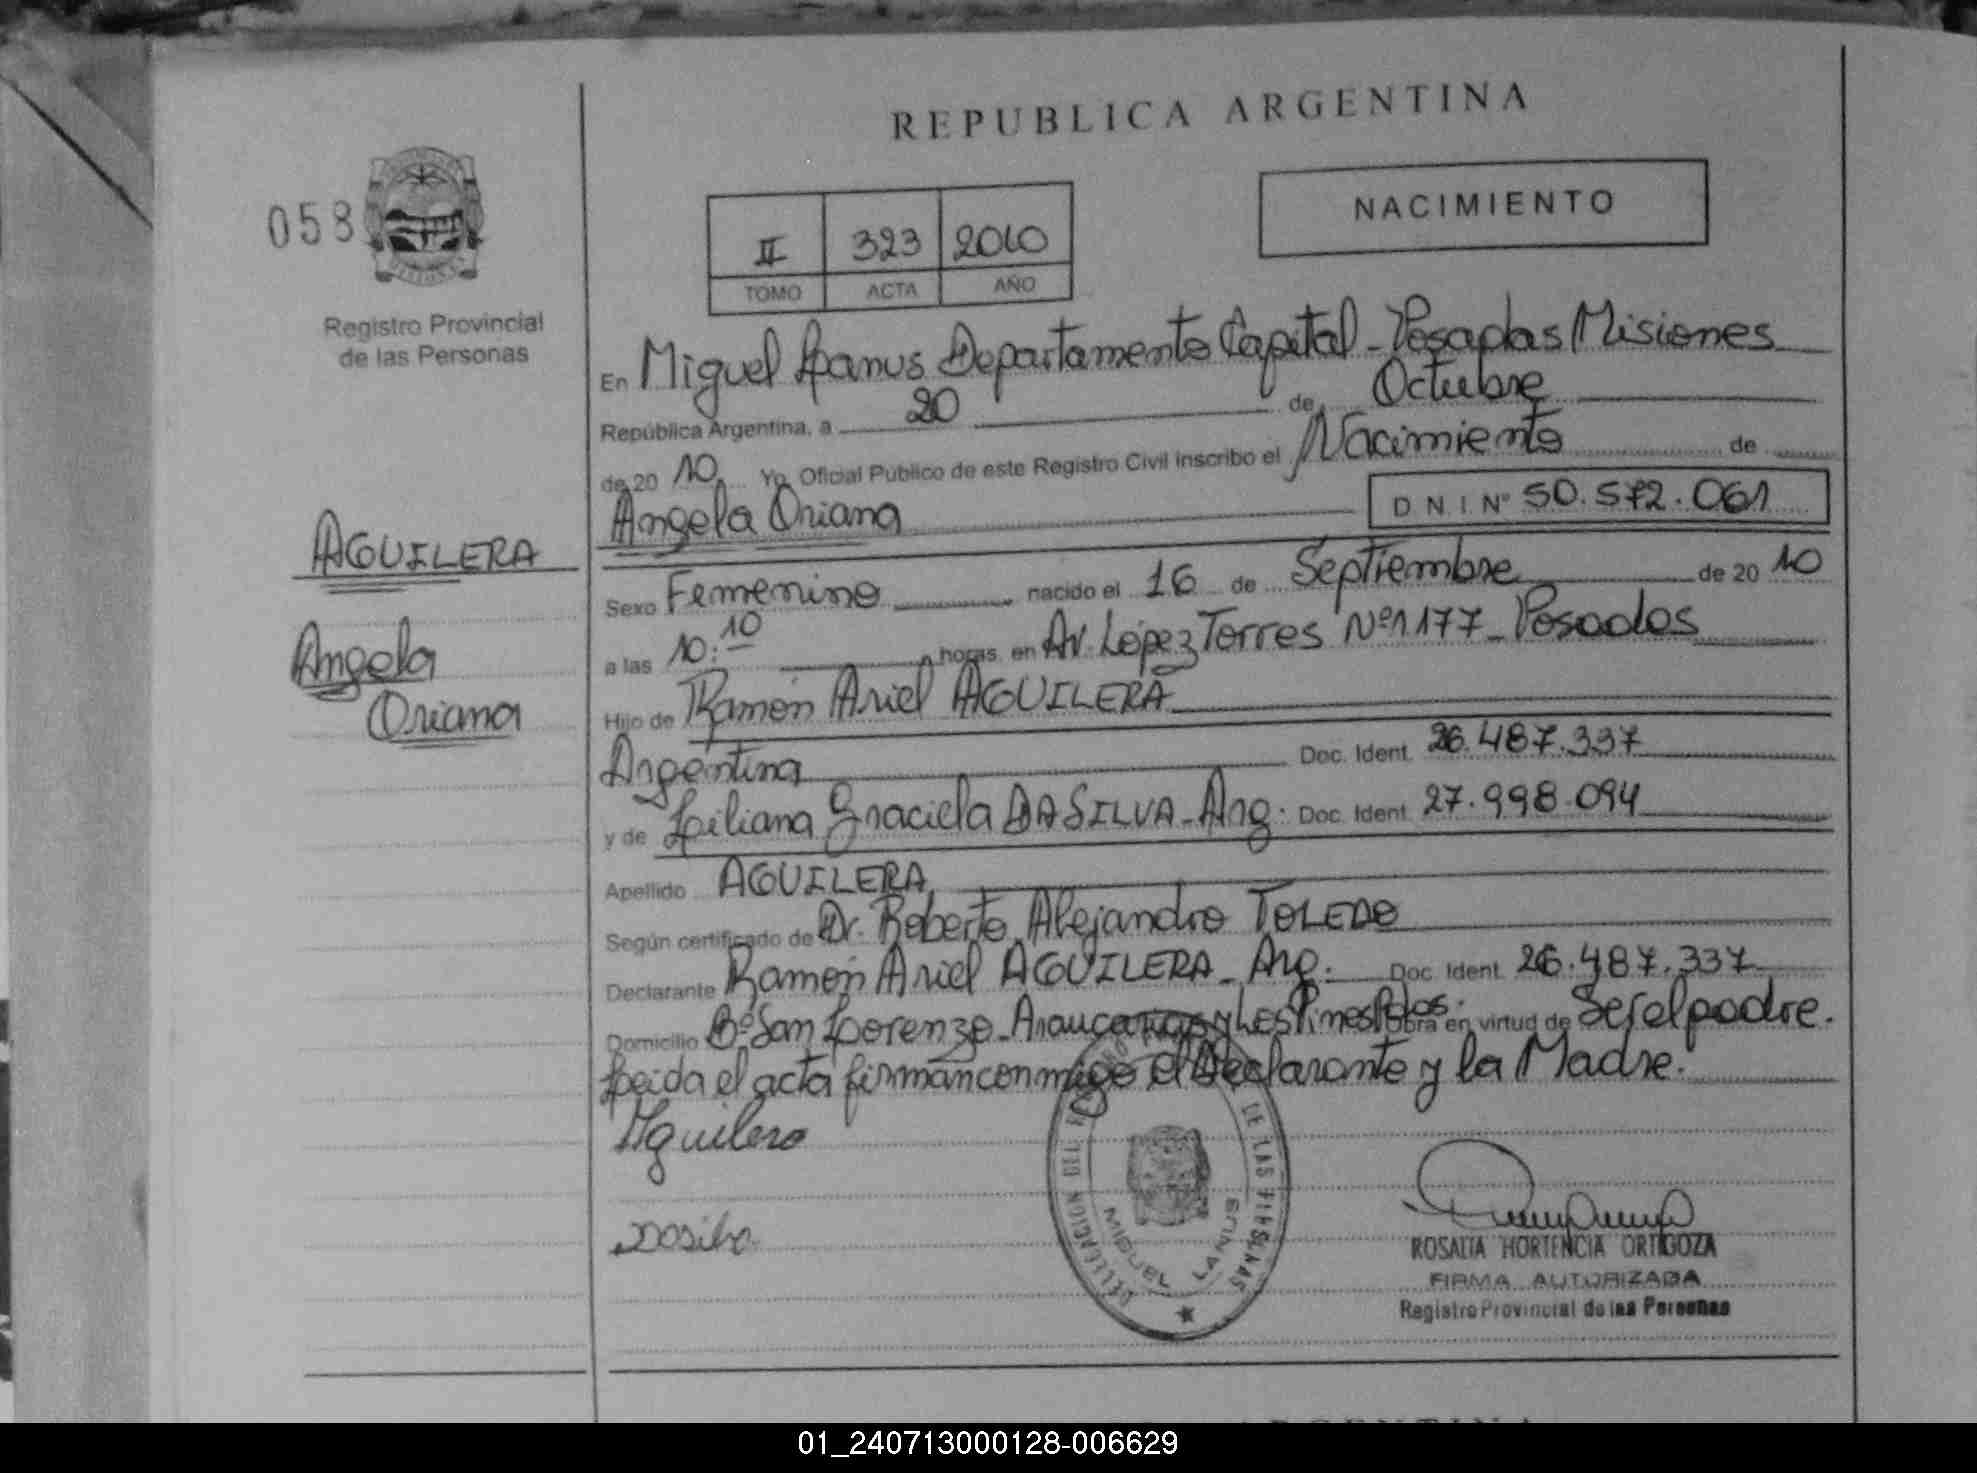 REPUBLICA ARGENTINA
NACIMIENTO
058
II 323 2010
TOMO ACTA AÑO
Registro Provincial
de las Personas
En Miguel Lanus Departamento Capital - Posadas Misiones
República Argentina, a 20 de Octubre
de 20 10 Yo, Oficial Público de este Registro Civil inscribo el Nacimiento de
Angela Oriana D N I Nº 50.572.061
AGUILERA
Angela
Oriana
Sexo Femenino nacido el 16 de Septiembre de 20 10
a las 10:10 horas, en Av. López Torres Nº 1177 - Posadas
Hijo de Ramón Ariel AGUILERA
Argentina Doc. Ident. 26.487.337
y de Liliana Graciela DA SILVA - Arg. Doc. Ident. 27.998.094
Apellido AGUILERA
Según certificado de Dr. Roberto Alejandro TOLEDO
Declarante Ramón Ariel AGUILERA - Arg. Doc. Ident. 26.487.337
Domicilio Bº San Lorenzo - Araucarias y Los Pinos Pdas. Obra en virtud de Ser el padre.
Leida el acta firman conmigo el Declarante y la Madre.
Aguilera
Dasilva
DELEGACION DEL REGISTRO DE LAS PERSONAS
MIGUEL LANUS
ROSALIA HORTENCIA ORTIGOZA
FIRMA AUTORIZADA
Registro Provincial de las Personas
ARGENTINA
01_240713000128-006629